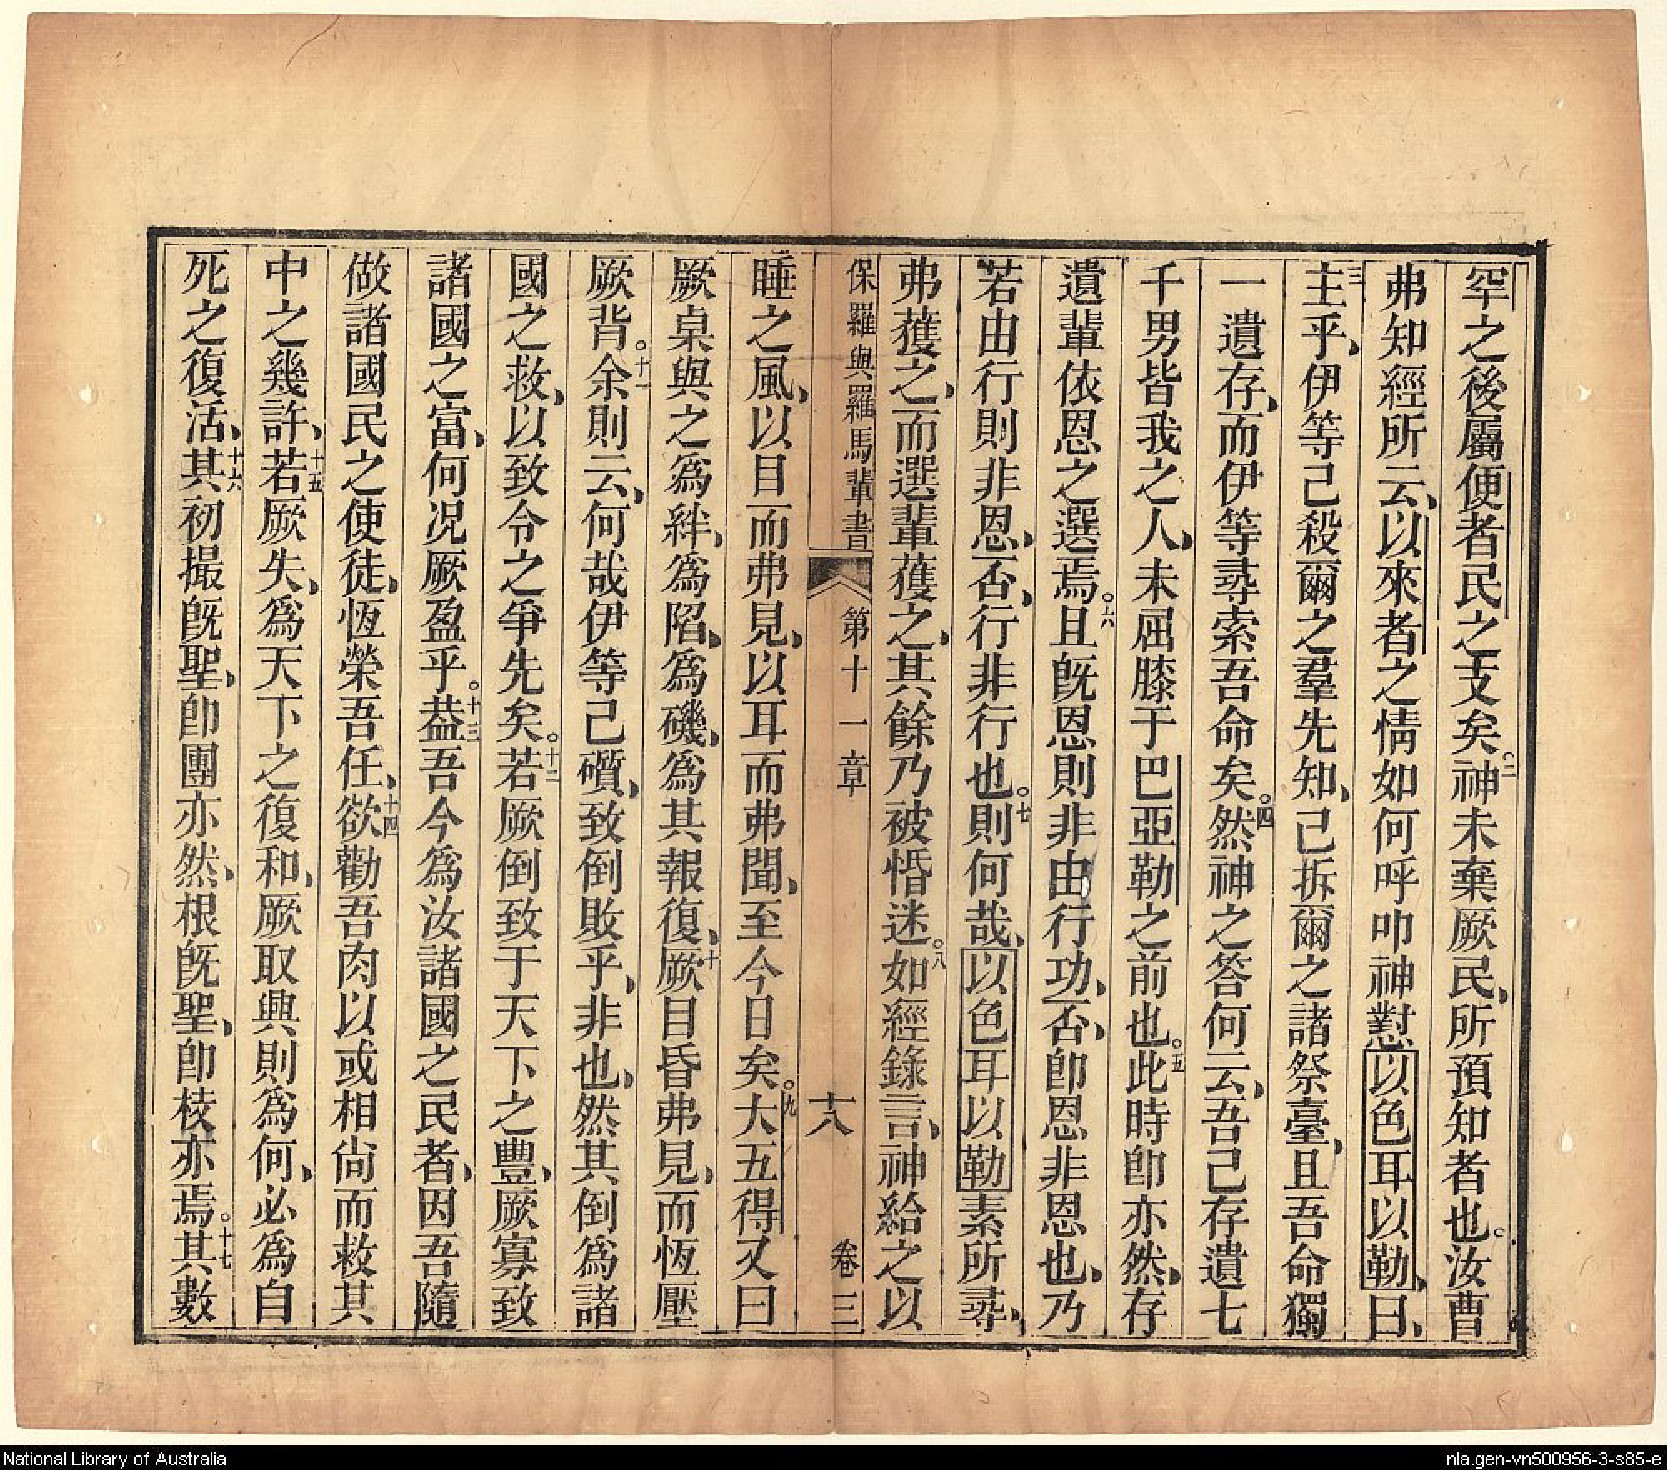 罕之後屬便者民之支矣。二神未棄厥民、所預知者也。汝曹
弗知經所云、以來者之情如何呼叩神懟以色耳以勒、曰、
三主乎、伊等已殺爾之羣先知、已拆爾之諸祭臺、且吾命獨
一遺存、而伊等尋索吾命矣。四然神之答何云、吾已存遺七
千男皆我之人、未屈膝于巴亞勒之前也。五此時卽亦然、存
遺輩依恩之選焉。六且旣恩則非由行功、否、卽恩非恩也、乃
若由行則非恩、否、行非行也。七則何哉、以色耳以勒素所尋、
弗獲之、而選輩獲之、其餘乃被惛迷。八如經錄言、神給之以
保羅與羅馬輩書 第十一章 十八 卷三
睡之風、以目而弗見、以耳而弗聞、至今日矣。九大五得又曰
厥桌與之爲絆、爲陷、爲磯、爲其報復、十厥目昏弗見、而恆壓
厥背。十一余則云、何哉伊等已礩、致倒敗乎、非也、然其倒爲諸
國之救、以致令之爭先矣。十二若厥倒致于天下之豐、厥寡致
諸國之富、何況厥盈乎。十三葢吾今爲汝諸國之民者、因吾隨
做諸國民之使徒、恆榮吾任、十四欲勸吾肉以或相尙而救其
中之幾許、十五若厥失、爲天下之復和、厥取興則爲何、必爲自
死之復活、十六其初撮旣聖、卽團亦然、根旣聖、卽棱亦焉。十七其數
National Library of Australia
nla.gen-vn500956-3-s85-e